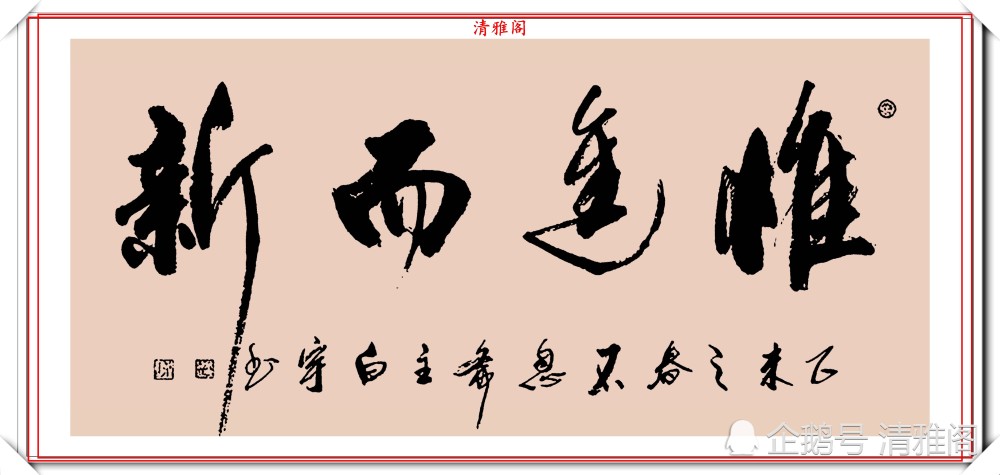 清雅阁
惟進而新
未之春不息齋主白书
企鹅号 清雅阁